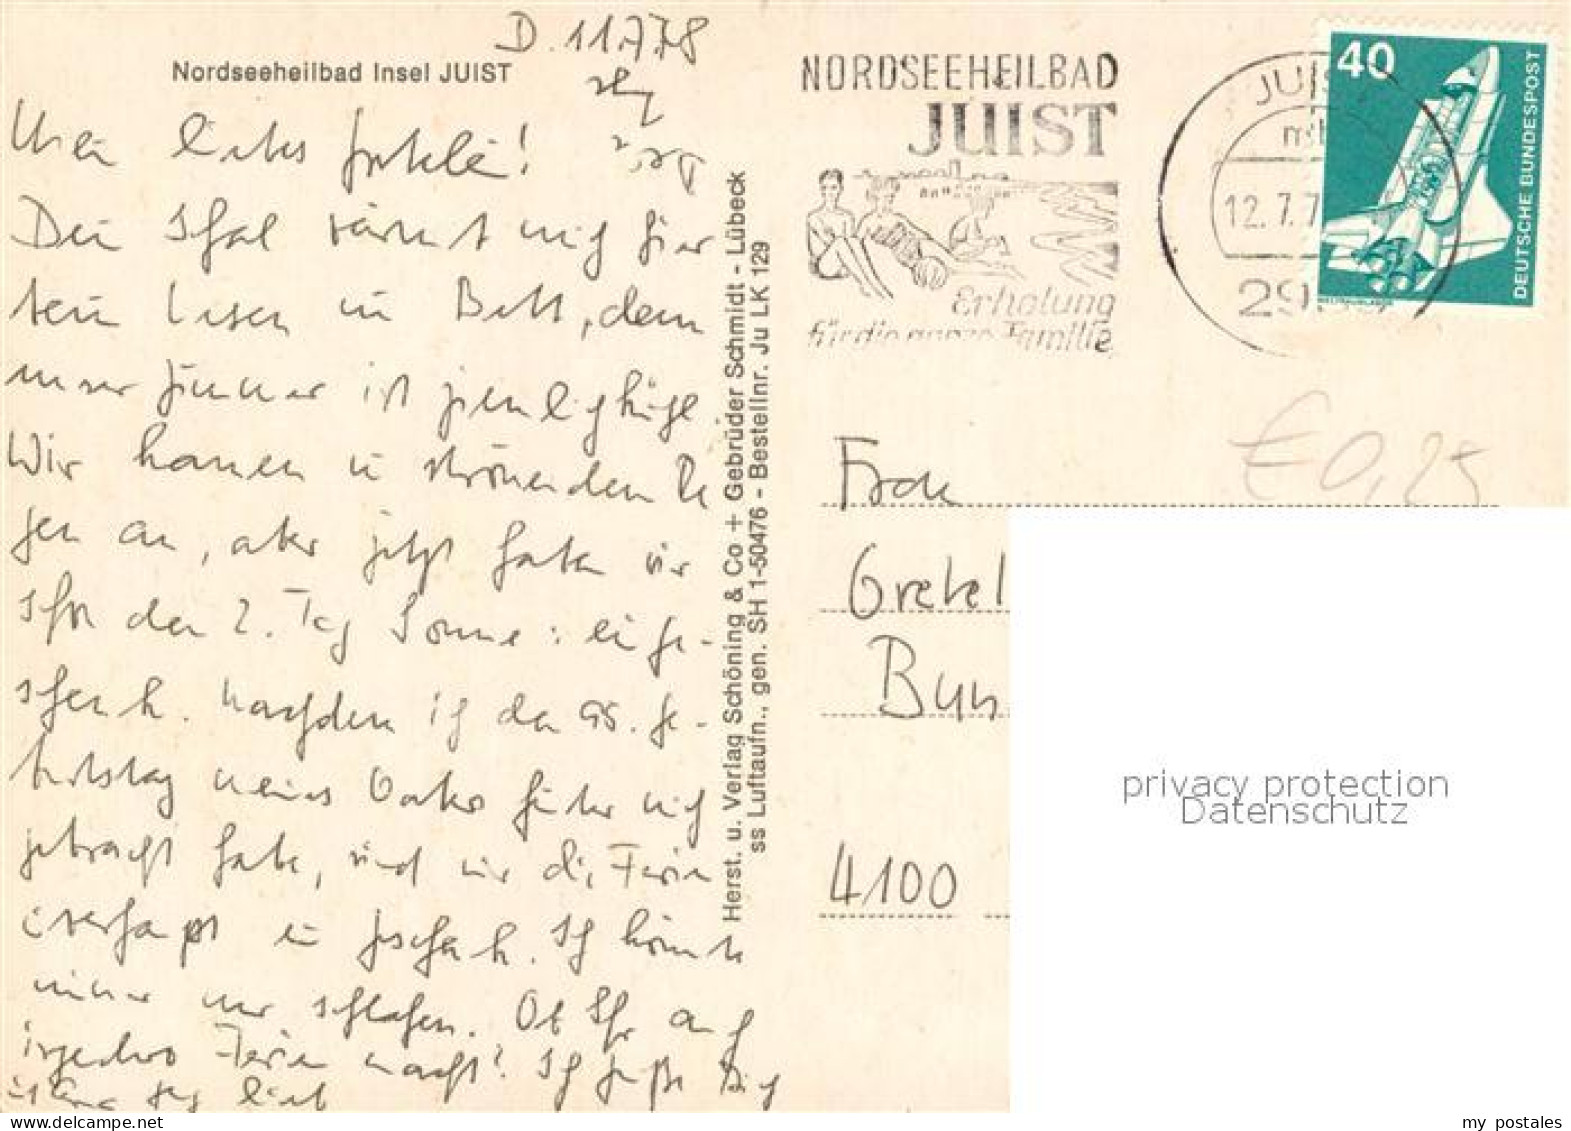 D. 11.7.78
Nordseeheilbad Insel JUIST
Mein liebes Gretelein!
Dein Schal wärmt mich hier
beim Lesen im Bett, denn
unser Zimmer ist ziemlich kühl.
Wir kamen in strömendem Re
gen an, aber jetzt haben wir
schon den 2. Tag Sonne: ein Ge-
schenk. Nachdem ich den 95. Ge-
burtstag meines Vaters hinter mich
gebracht habe, sind mir die Ferien
überhaupt ein Geschenk. Ich könnte
immer nur schlafen. Ob Ihr auch
irgendwo Ferien macht? Ich grüße Dich
lieb
Herst. u. Verlag Schöning & Co + Gebrüder Schmidt - Lübeck
ss Luftaufn., gen. SH 1-50476 - Bestellnr. Ju LK 129
NORDSEEHEILBAD
JUIST
Erholung
für die ganze Familie
JUIST
12.7.7
40
DEUTSCHE BUNDESPOST
€ 0,25
Frau
Gretel
Bun
4100
privacy protection
Datenschutz
www.delcampe.net
my_postales